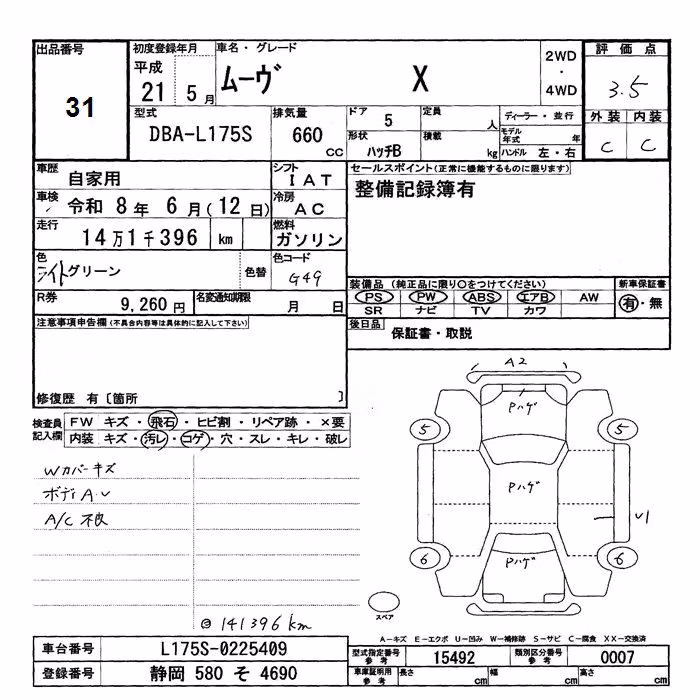 出品番号
31
初度登録年月
平成
21 5月
車名・グレード
ムーヴ X
2WD
・
4WD
評価点
3.5
外装 内装
C C
型式
DBA-L175S
排気量
660 cc
ドア
5
定員
人
ディーラー・並行
形状
ハッチB
積載
kg
モデル年式
年
ハンドル 左・右
車歴
自家用
シフト
IAT
車検
令和 8年 6月(12日)
冷房
AC
走行
14万1千396 km
燃料
ガソリン
色
ライトグリーン
色替
色コード
G49
R券
9,260円
名変通知期限
月 日
セールスポイント(正常に機能するものに限ります)
整備記録簿有
装備品(純正品に限り○をつけてください)
PS PW ABS エアB AW
SR ナビ TV カワ
新車保証書
有・無
後日品
保証書・取説
注意事項申告欄(不具合内容等は具体的に記入して下さい)
修復歴 有〔箇所 〕
検査員記入欄
FW キズ・飛石・ヒビ割・リペア跡・×要
内装 キズ・汚レ・コゲ・穴・スレ・キレ・破レ
Wカバーキズ
ボディAU
A/C不良
◎141396km
A2
Pハゲ
5 5
Pハゲ
U1
6 6
Pハゲ
スペア
A－キズ E－エクボ U－凹み W－補修跡 S－サビ C－腐食 XX－交換済
車台番号
L175S-0225409
登録番号
静岡 580 そ 4690
型式指定番号
参考
15492
類別区分番号
参考
0007
車庫証明用
参考
長さ
cm
幅
cm
高さ
cm